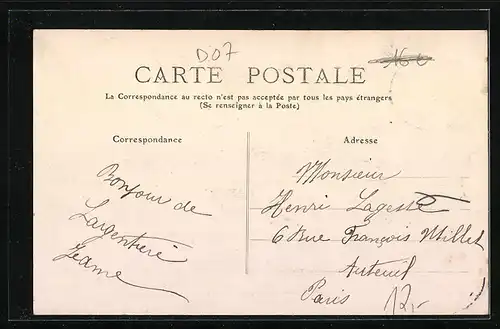 D07
CARTE POSTALE
La Correspondance au recto n'est pas acceptée par tous les pays étrangers
(Se renseigner à la Poste)
Correspondance
Bonjour de
Largentière
Jeanne
Adresse
Monsieur
Henri Lagesse
6 Rue François Millet
Auteuil
Paris
12,-